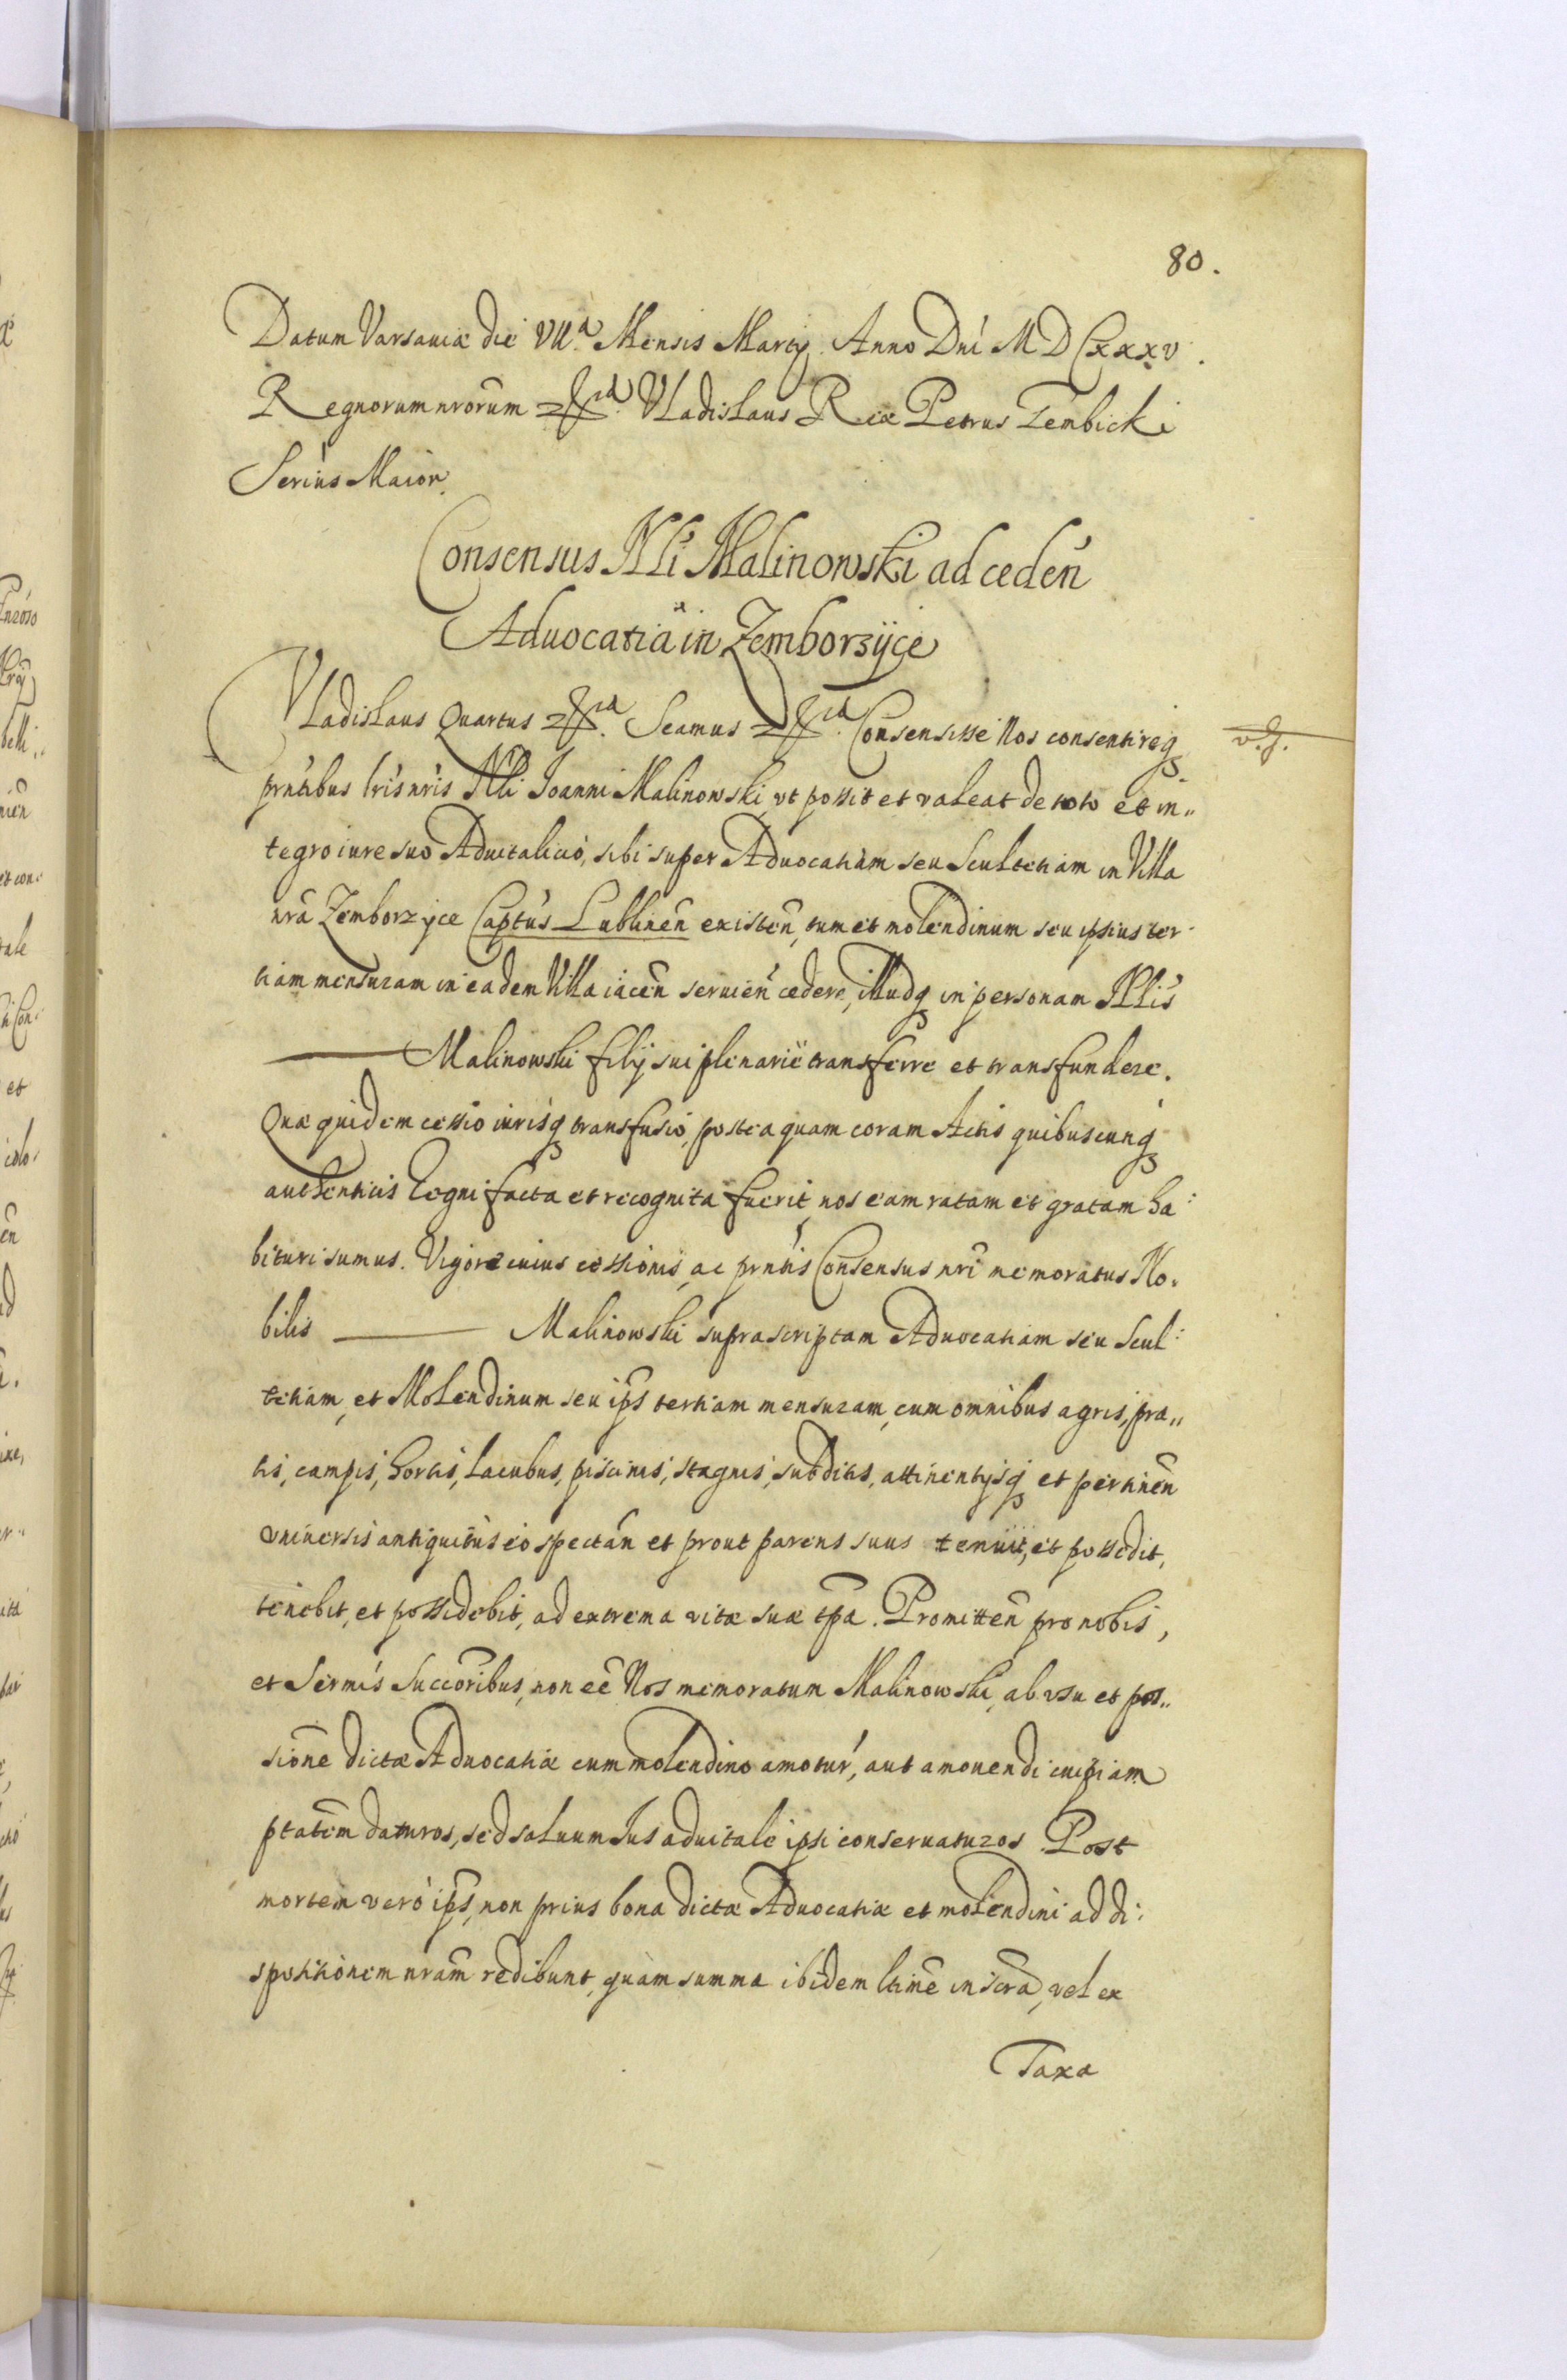 80.
Datum Varsaviæ die VIIa. Mensis Martij Anno Dni M D CXXXV.
Regnorum nrorum Vladislaus Rex Petrus Gembicki
Secrius Maior.
Consensus Nli Malinowski ad ceden
Aduocatia in Zemborzyce
Vladislaus Quartus Scamus Consensisse Nos consentireq
v. J.
prntibus lris nris Nli Ioanni Malinowski, vt possit et valeat de toto et in„
tegro iure suo Aduitalicio, sibi super Aduocatiam seu Scultetiam in Villa
nra Zemborzyce Captus Lublinen existen, tum et molendinum seu ipsius ter-
tiam mensuram in eadem Villa iacen seruien cedere, illudq in personam Nlis
——— Malinowski filij sui plenarie transferre et transfundere.
Quæ quidem cessio iurisq transfusio, postea quam coram Actis quibuscunq
authenticis Regni facta et recognita fuerit, nos eam ratam et gratam ha:
bituri sumus. Vigore cuius cessionis, ac prntis Consensus nri memoratus No.
bilis ——— Malinowski suprascriptam Aduocatiam seu Scul:
tetiam, et Molendinum seu ips tertiam mensuram, cum omnibus agris, pra„
tis, campis, hortis, lacubus, piscinis, stagnis, subditis, attinentijsq et pertinen
vniuersis antiquitus eo spectan et prout parens suus tenuit, et possedit,
tenebit, et possidebit, ad extrema vitæ suæ tpa. Promitten pro nobis,
et Sermis Succoribus, non ee Nos memoratum Malinowski, ab vsu et pos„
sione dictæ Aduocatiæ cum molendino amotur, aut amouendi cuipiam
ptatem daturos, sed saluum Ius aduitale ipsi conseruaturos. Post
mortem vero ips, non prius bona dictæ Aduocatiæ et molendini ad di:
spositionem nram redibunt, quam summa ibidem ltime inscra, vel ex
Taxa